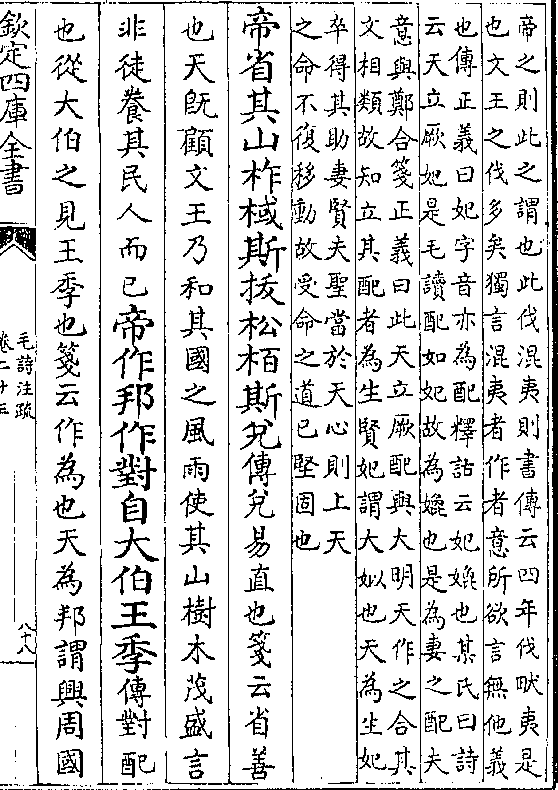 帝之則此之謂也此伐混夷則書傳云四年伐畎夷是
也文王之伐多矣獨言混夷者作者意所欲言無他義
也傳正義曰妃字音亦為配釋詁云妃媲也某氏曰詩
云天立厥妃是毛讀配如妃故為媲也是為妻之配夫
意與鄭合箋正義曰此天立厥配與大明天作之合其
文相類故知立其配者為生賢妃謂大姒也天為生妃
卒得其助妻賢夫聖當於天心則上天
之命不復移動故受命之道已堅固也
帝省其山柞棫斯拔松栢斯兊傳兊易直也箋云省善
也天既顧文王乃和其國之風雨使其山樹木茂盛言
非徒養其民人而已帝作邦作對自大伯王季傳對配
也從大伯之見王季也箋云作為也天為邦謂興周國
欽定四庫全書
毛詩注疏
卷二十三
八十八